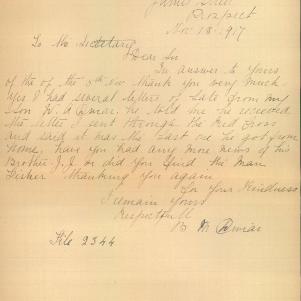 Prospect
Nov 18. 1917
To the Secretary
Dear Sir
In answer to Yours
of the of the 5th Nov thank you very much
Yes I had several letters of late from my
Son W. A he told me he received
the letter I sent through the Red Cross
and said it was the Last one he got from
home, have you had any more news of his
Brother J. J. or did you find the man
Fisher thanking You again
for Your Kindness
I remain Yours
Respectfull
B M
File 2344